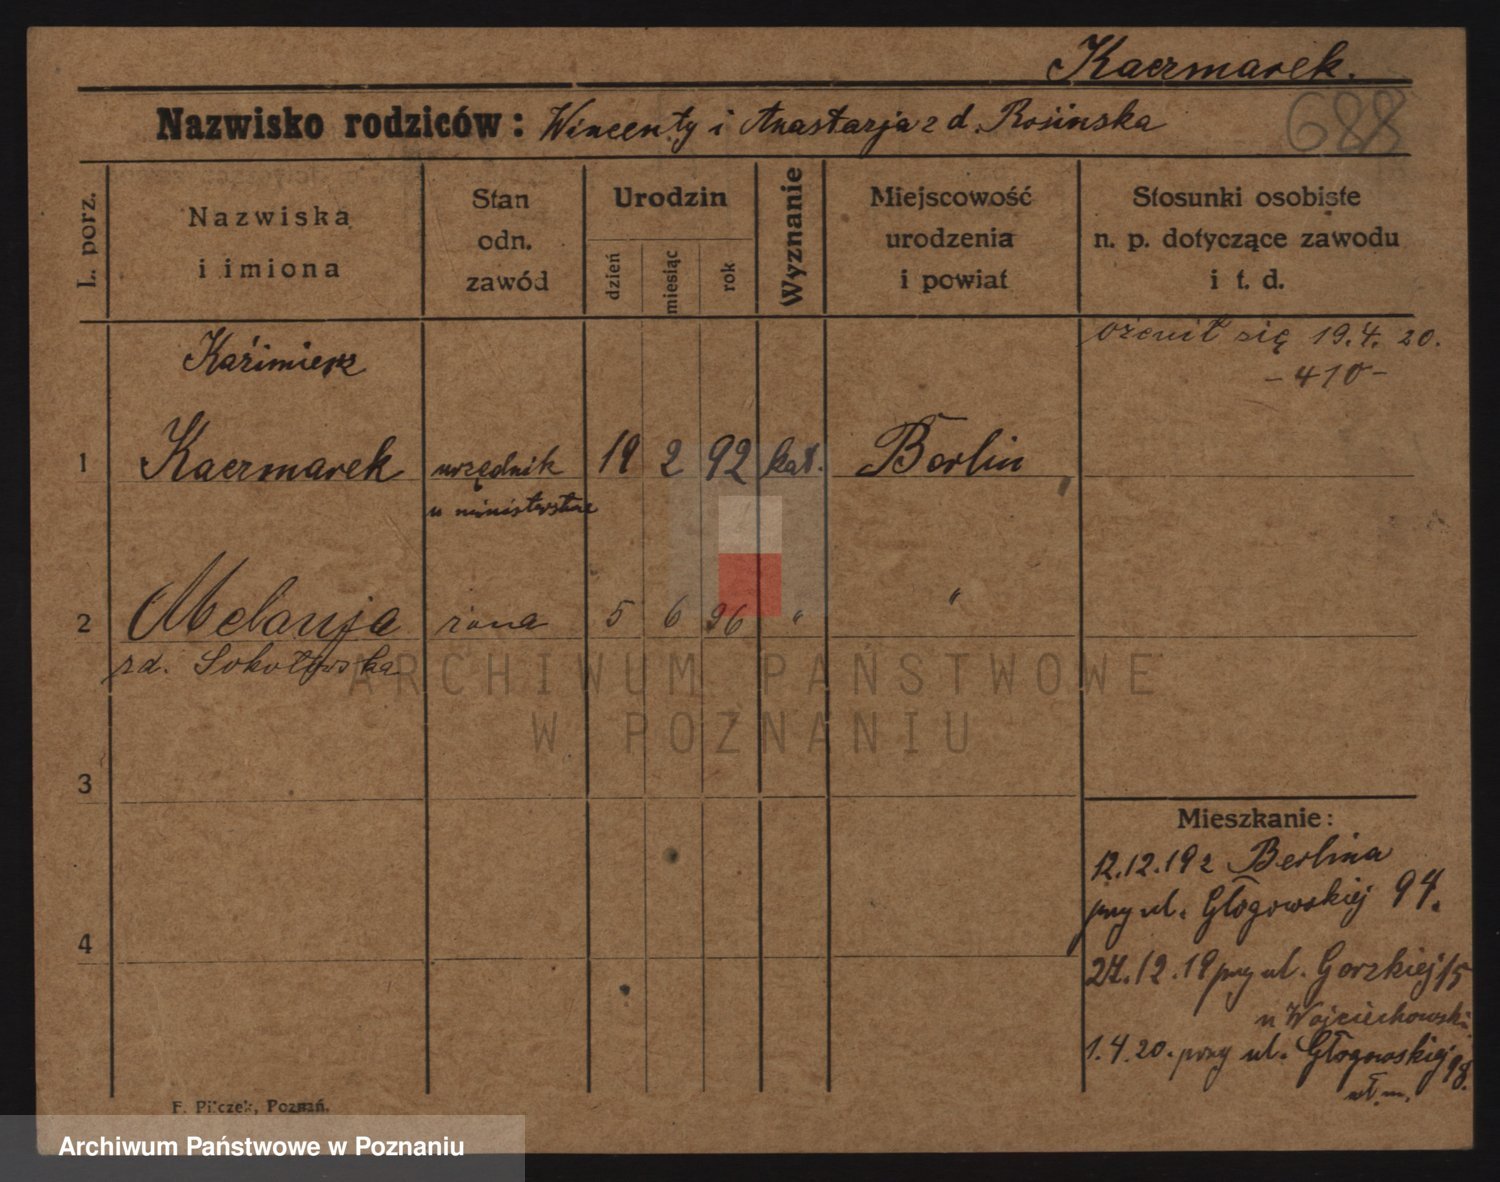 Kaczmarek.
688
Nazwisko rodziców: Wincenty i Anastazja z d. Rosińska
L. porz.
Nazwiska
i imiona
Stan
odn.
zawód
Urodzin
dzień
miesiąc
rok
Wyznanie
Miejscowość
urodzenia
i powiat
Stosunki osobiste
n. p. dotyczące zawodu
i t. d.
ożenił się 19.4.20.
-410-
Kaźimierz
1 Kaczmarek urzędnik 19 2 92 kat. Berlin
w ministerstwie
2 Melanja żona 5 6 96 " "
zd. Sokołowska
ARCHIWUM PAŃSTWOWE
W POZNANIU
3
4
Mieszkanie:
12.12.19 z Berlina
przy ul. Głogowskiej 94.
27.12.19 przy ul. Gorzkiej 15
u Wojciechowski
1.4.20. przy ul. Głogowskiej 98.
wł. m.
F. Pilczek, Poznań.
Archiwum Państwowe w Poznaniu